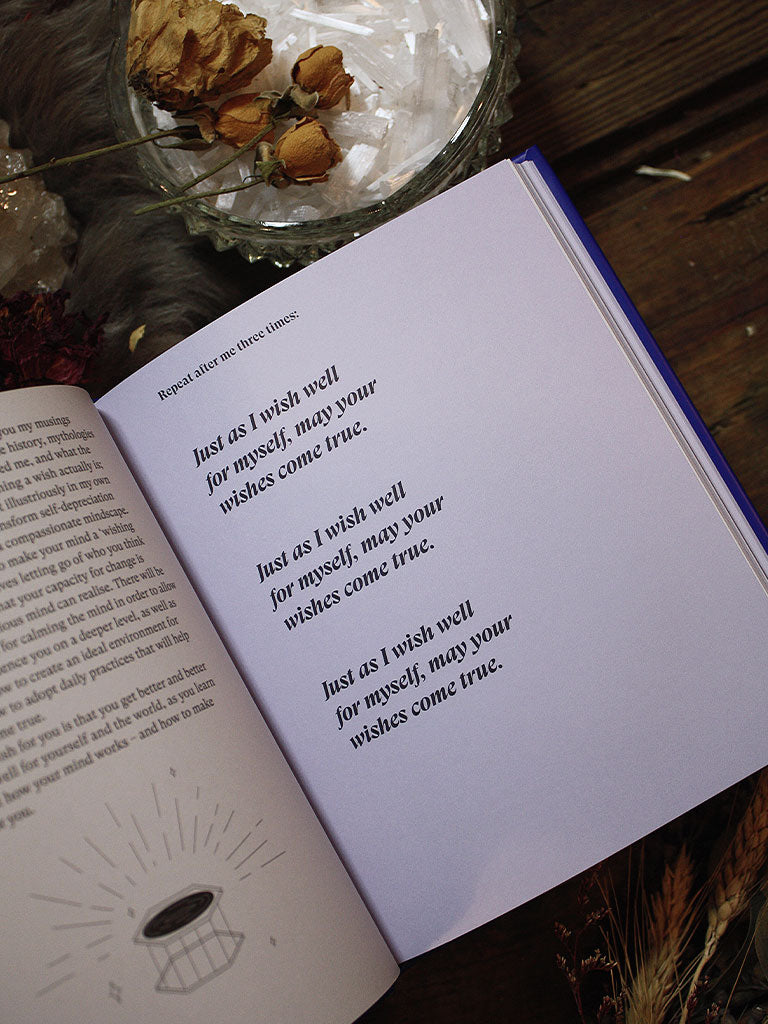 you my musings
history, mythologies
ed me, and what the
ning a wish actually is;
illustriously in my own
nsform self-depreciation
compassionate mindscape.
o make your mind a 'wishing
ves letting go of who you think
hat your capacity for change is
ious mind can realise. There will be
for calming the mind in order to allow
ence you on a deeper level, as well as
ow to create an ideal environment for
to adopt daily practices that will help
me true.
sh for you is that you get better and better
well for yourself and the world, as you learn
how your mind works – and how to make
you.
Repeat after me three times:
Just as I wish well
for myself, may your
wishes come true.
Just as I wish well
for myself, may your
wishes come true.
Just as I wish well
for myself, may your
wishes come true.